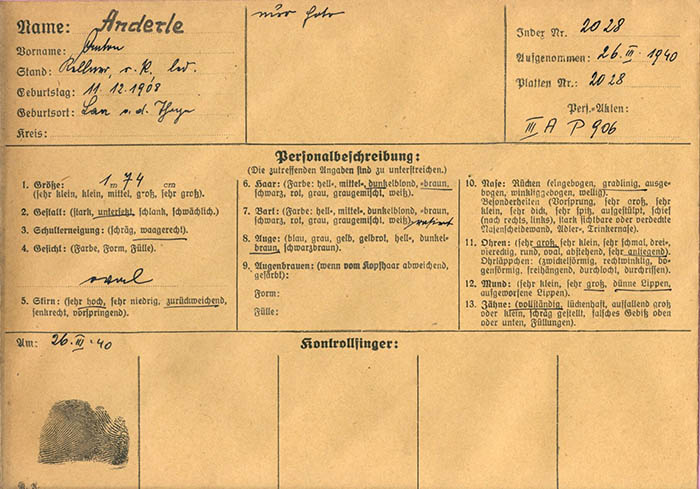 Name: Anderle
Vorname: Anton
Stand: Kellner, r. k. led.
Geburtstag: 11. 12. 1908
Geburtsort: Laa a. d. Thaya
Kreis:
nur Foto
Index Nr. 2028
Aufgenommen: 26. III. 1940
Platten Nr.: 2028
Pers.-Akten:
III A P 906
Personalbeschreibung:
(Die zutreffenden Angaben sind zu unterstreichen.)
1. Größe: 1 m 74 cm
(sehr klein, klein, mittel, groß, sehr groß).
2. Gestalt: (stark, untersetzt, schlank, schwächlich).
3. Schulterneigung: (schräg, waagerecht).
4. Gesicht: (Farbe, Form, Fülle).
oval
5. Stirn: (sehr hoch, sehr niedrig, zurückweichend,
senkrecht, vorspringend).
6. Haar: (Farbe: hell-, mittel-, dunkelblond, -braun,
schwarz, rot, grau, graugemischt, weiß).
7. Bart: (Farbe: hell-, mittel-, dunkelblond, -braun,
schwarz, rot, grau, graugemischt, weiß) rasiert
8. Auge: (blau, grau, gelb, gelbrot, hell-, dunkel-
braun, schwarzbraun).
9. Augenbrauen: (wenn vom Kopfhaar abweichend,
gefärbt).
Form:
Fülle:
10. Nase: Rücken (eingebogen, gradlinig, ausge-
bogen, winkliggebogen, wellig).
Besonderheiten (Vorsprung, sehr groß, sehr
klein, sehr dick, sehr spitz, aufgestülpt, schief
(nach rechts, links), stark sichtbare oder verdeckte
Nasenscheidewand, Adler-, Trinkernase).
11. Ohren: (sehr groß, sehr klein, sehr schmal, drei-,
viereckig, rund, oval, abstehend, sehr anliegend).
Ohrläppchen: (zwickelförmig, rechtwinklig, bo-
genförmig, freihängend, durchlocht, durchrissen).
12. Mund: (sehr klein, sehr groß, dünne Lippen,
aufgeworfene Lippen).
13. Zähne: (vollständig, lückenhaft, auffallend groß
oder klein, schräg gestellt, falsches Gebiß oben
oder unten, Füllungen).
Am: 26. III. 40
Kontrollfinger: